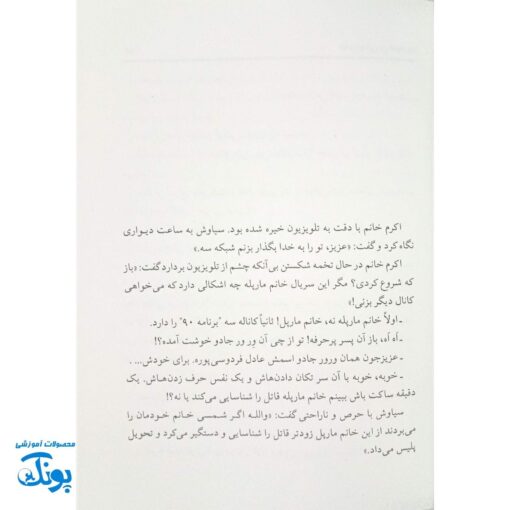 اکرم خانم با دقت به تلویزیون خیره شده بود. سیاوش به ساعت دیواری
نگاه کرد و گفت: «عزیز، تو را به خدا بگذار بزنم شبکه سه.»
اکرم خانم در حال تخمه شکستن بی‌آنکه چشم از تلویزیون بردارد گفت: «باز
که شروع کردی؟ مگر این سریال خانم مارپله چه اشکالی دارد که می‌خواهی
کانال دیگر بزنی!»
ـ اولاً خانم مارپله نه، خانم مارپل! ثانیاً کاناله سه "برنامه ۹۰" را دارد.
ـ اَه اَه، باز آن پسر پرحرفه! تو از چی آن ور ور جادو خوشت آمده؟!
ـ عزیزجون همان ورور جادو اسمش عادل فردوسی‌پوره. برای خودش... .
ـ خوبه، خوبه با آن سر تکان دادن‌هاش و یک نفس حرف زدن‌هاش. یک
دقیقه ساکت باش ببینم خانم مارپله قاتل را شناسایی می‌کند یا نه؟!
سیاوش با حرص و ناراحتی گفت: «والله اگر شمسی خانم خودمان را
می‌بردند از این خانم مارپل زودتر قاتل را شناسایی و دستگیر می‌کرد و تحویل
پلیس می‌داد.»
محصولات آموزشی
پونک